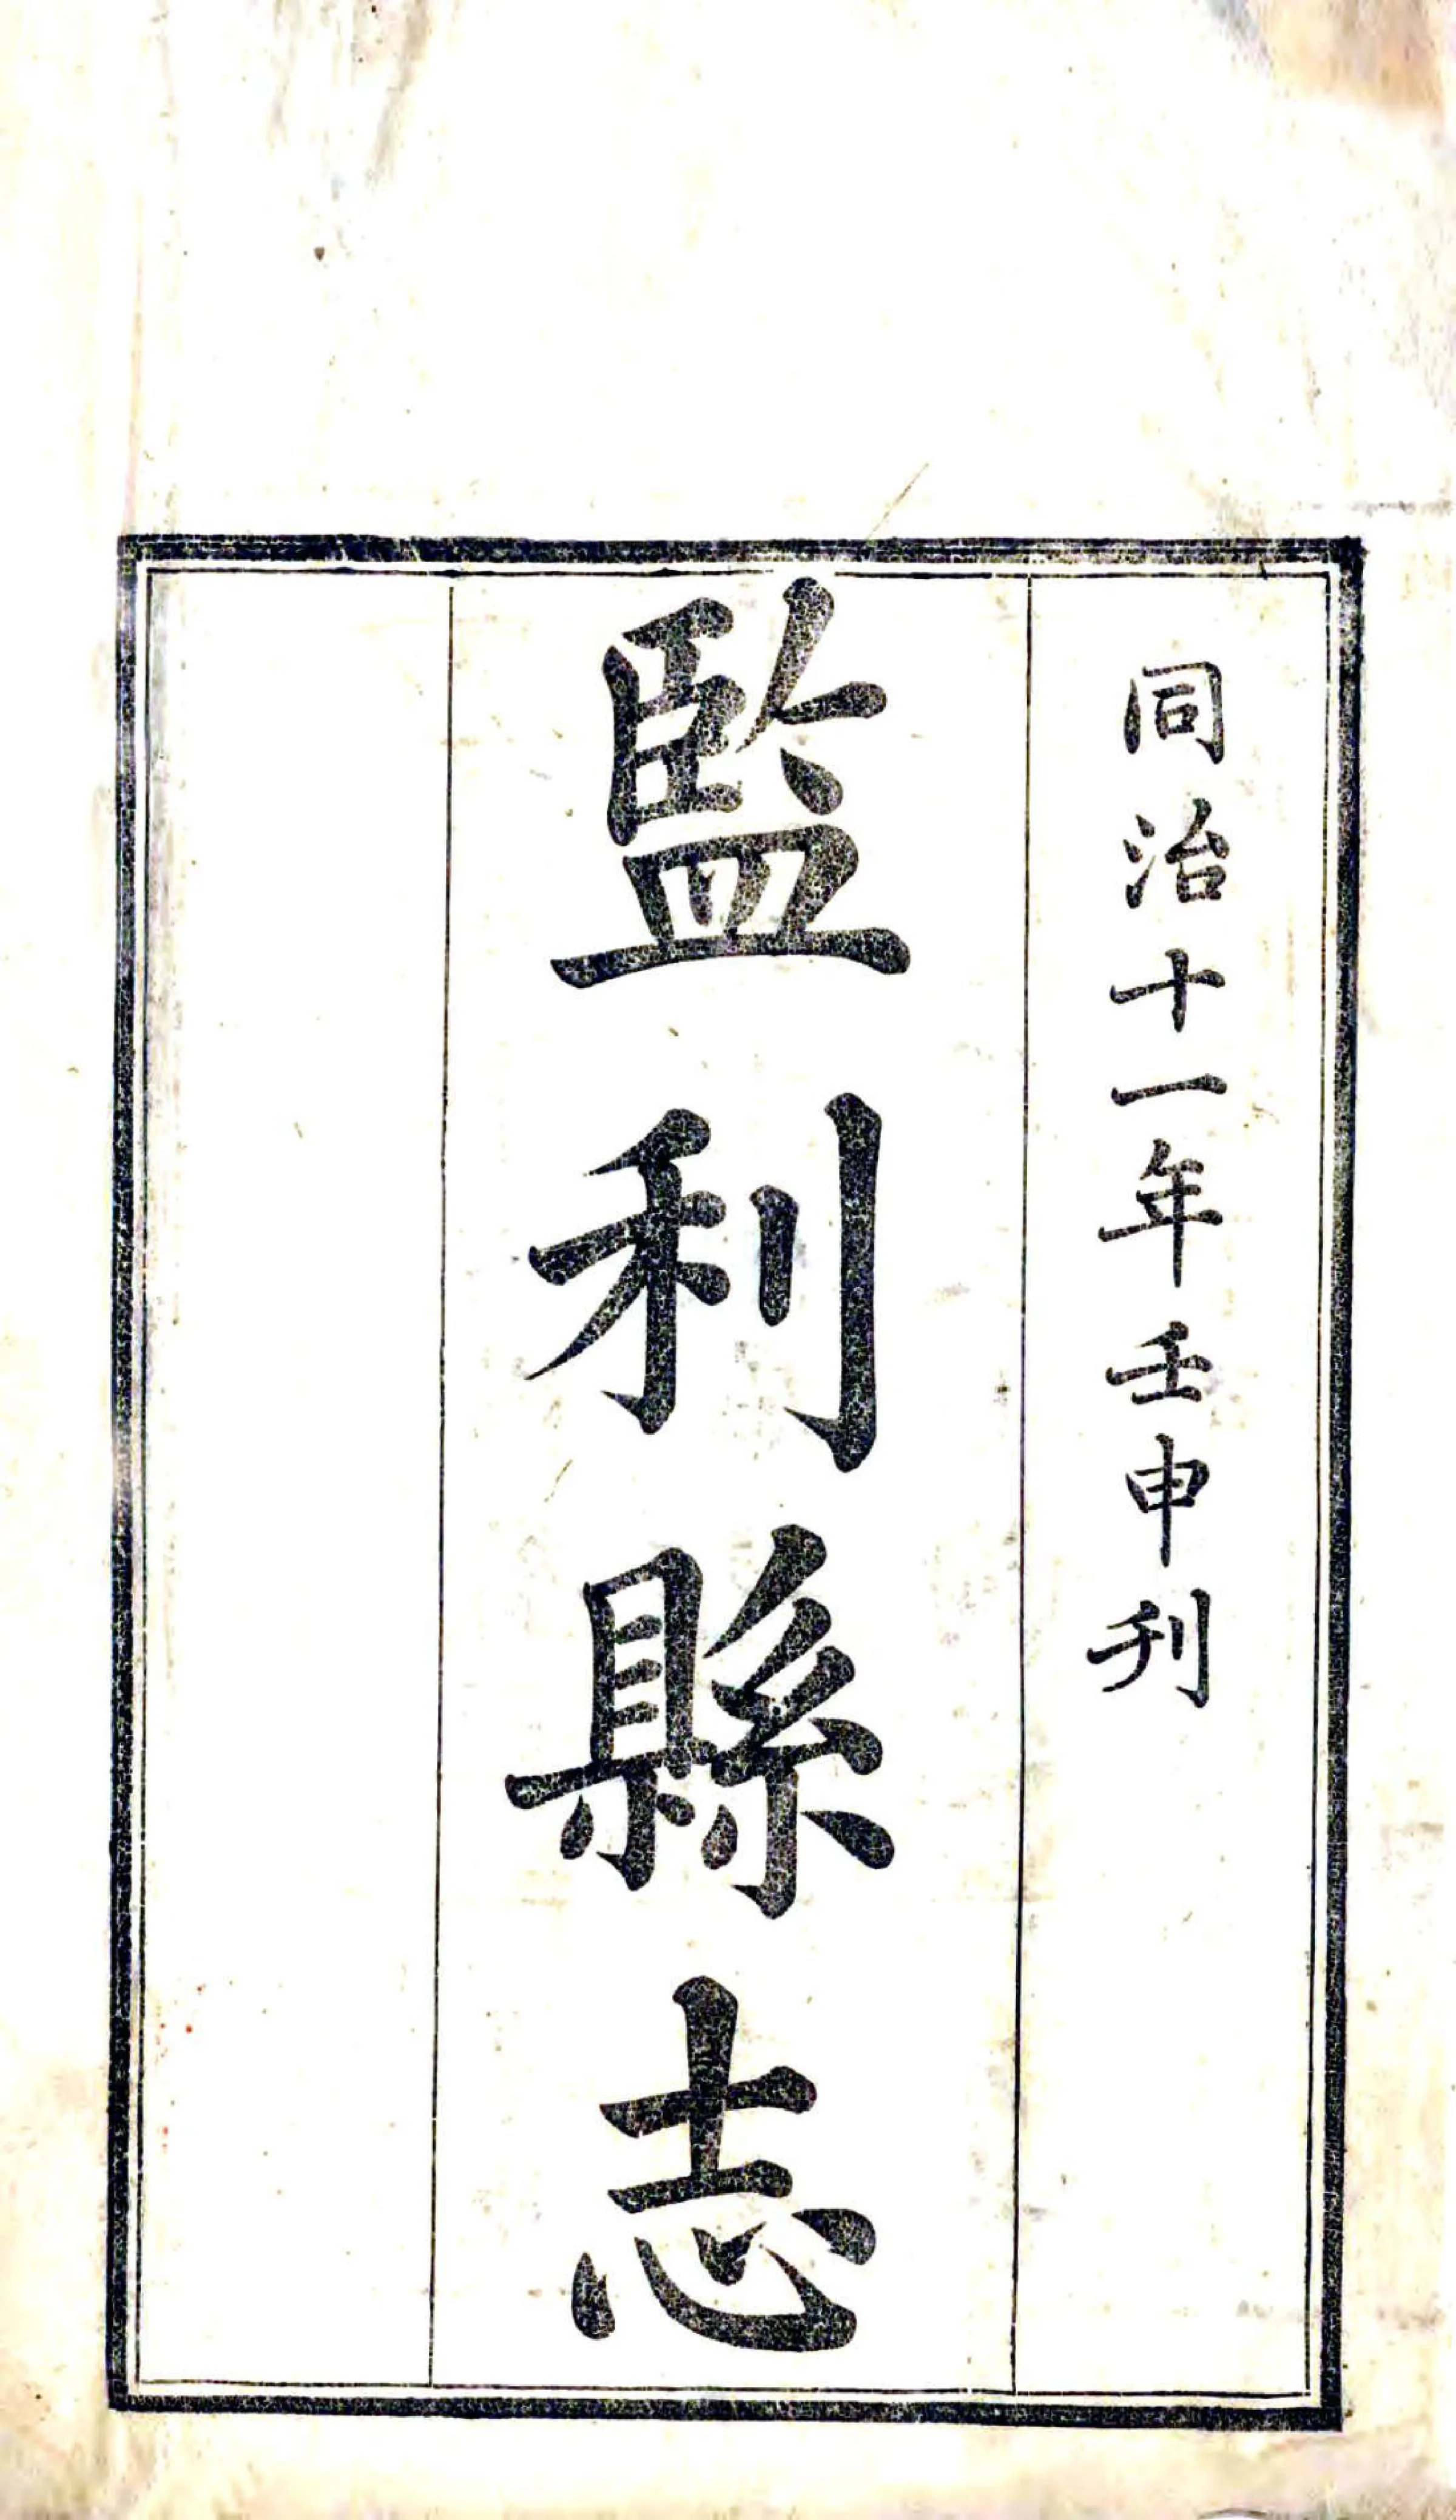 同治十一年壬申刊
監利縣志